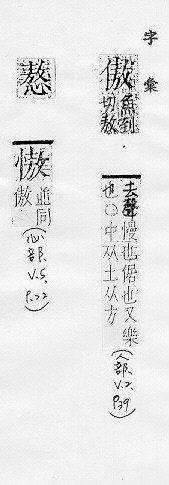 字彙
傲
魚到
切敖
去聲慢也倨也又樂
也○中从土从方
(人部、V.2、P.39)
慠
並同
傲
(心部、V.5、P.22)